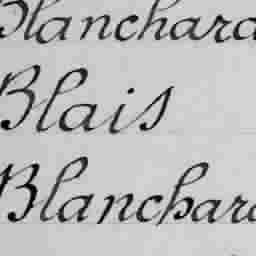 Blanchard
Blais
Blanchard